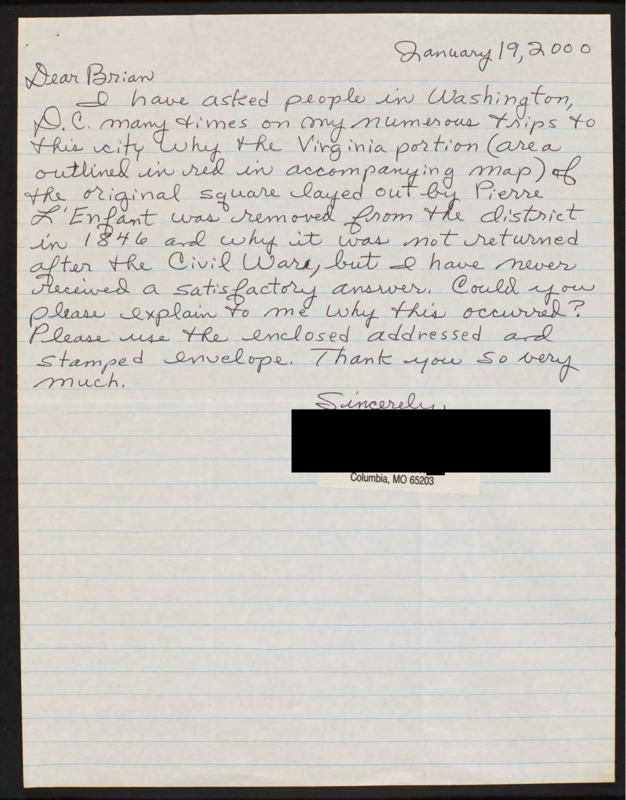 January 19, 2000
Dear Brian
I have asked people in Washington,
D.C. many times on my numerous trips to
this city why the Virginia portion (area
outlined in red in accompanying map) of
the original square layed out by Pierre
L'Enfant was removed from the district
in 1846 and why it was not returned
after the Civil War, but I have never
received a satisfactory answer. Could you
please explain to me why this occurred?
Please use the enclosed addressed and
stamped envelope. Thank you so very
much.
Sincerely,
Columbia, MO 65203